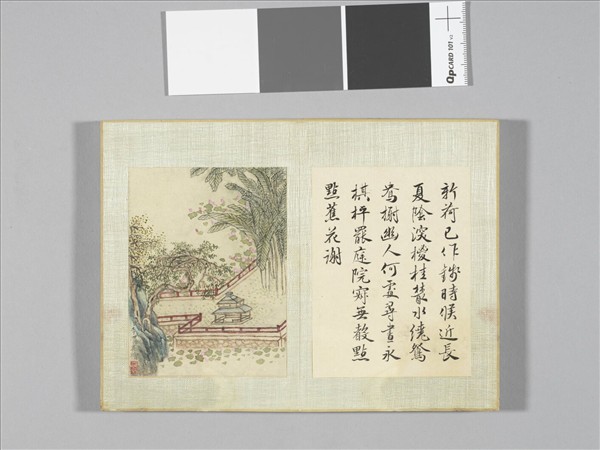 新荷已作錢時候近長
夏陰桂叢水繞鴛
鴦榭幽人何處尋晝永
棋枰罷庭院寂無聲點
點蕉花謝
QPCARD 101 v2